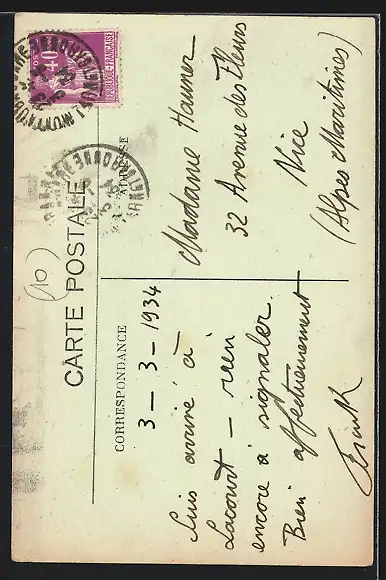 CARTE POSTALE
(10)
CORRESPONDANCE
ADRESSE
3 — 3 — 1934
Suis arrivé à
Lacourt — rien
encore à signaler.
Bien affectueusement
Madame Hauner
32 Avenue des Fleurs
Nice
(Alpes Maritimes)
40
REPUBLIQUE FRANÇAISE